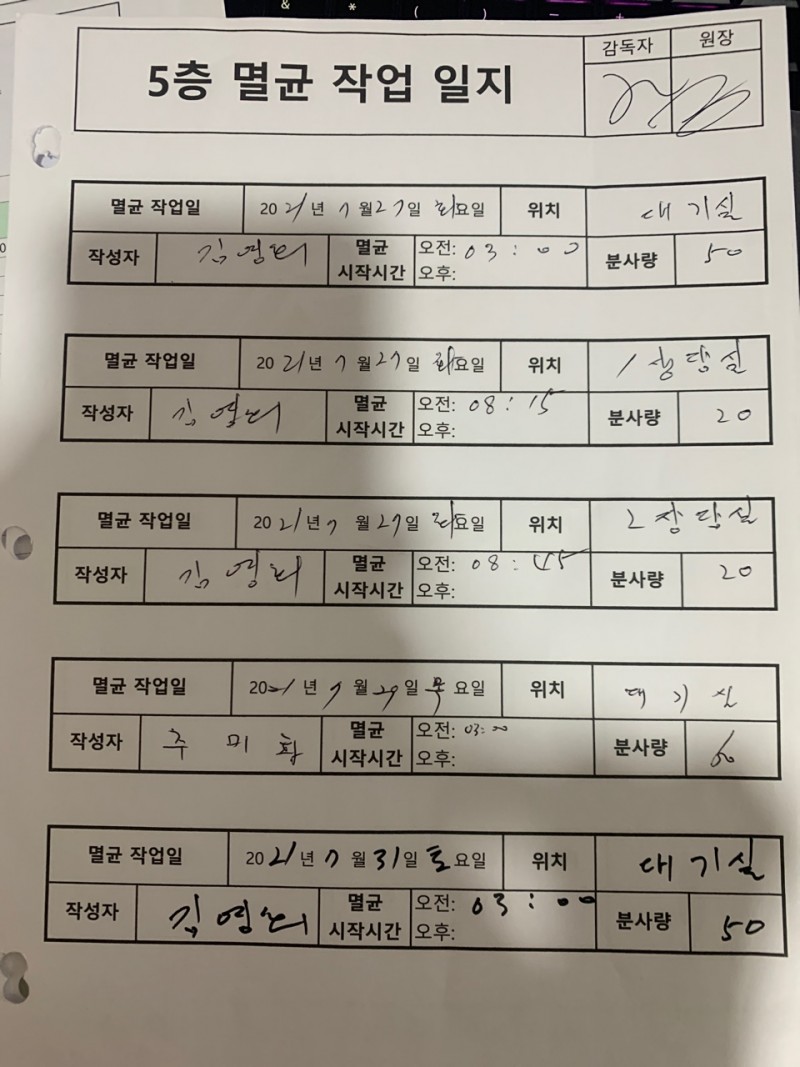 5층 멸균 작업 일지
감독자 원장
멸균 작업일 2021년 7월 27일 화요일 위치 대기실
작성자 김영희 멸균 시작시간 오전: 03:00 분사량 50
오후:
멸균 작업일 2021년 7월 27일 화요일 위치 1상담실
작성자 김영희 멸균 시작시간 오전: 08:15 분사량 20
오후:
멸균 작업일 2021년 7월 27일 화요일 위치 2상담실
작성자 김영희 멸균 시작시간 오전: 08:45 분사량 20
오후:
멸균 작업일 2021년 7월 29일 목요일 위치 대기실
작성자 주미화 멸균 시작시간 오전: 03:00 분사량
오후:
멸균 작업일 2021년 7월 31일 토요일 위치 대기실
작성자 김영희 멸균 시작시간 오전: 03:00 분사량 50
오후: